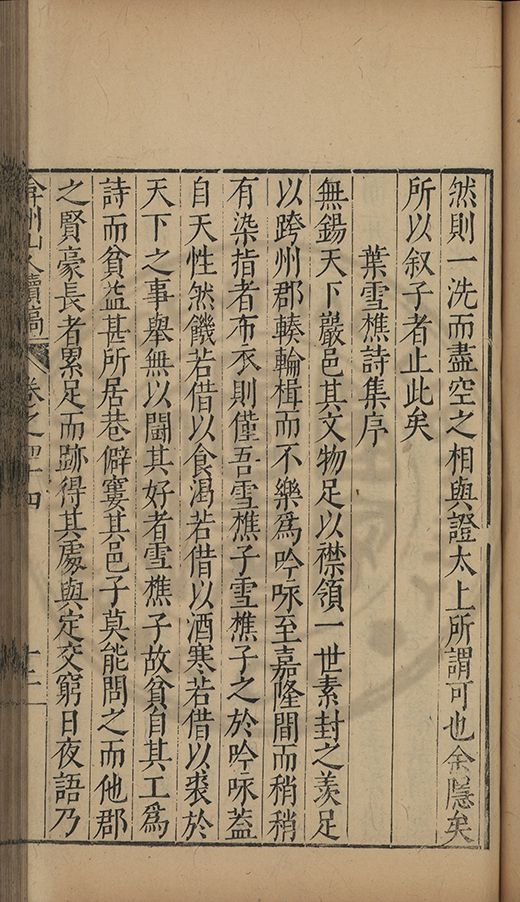 然則一洗而盡空之相與證太上所謂可也余隱矣
所以叙子者止此矣
葉雪樵詩集序
無錫天下嚴邑其文物足以襟領一世素封之羡足
以跨州郡轃輪楫而不樂爲吟咏至嘉隆間而稍稍
有染指者布衣則僅吾雪樵子雪樵子之於吟咏蓋
自天性然饑若借以食渴若借以酒寒若借以裘於
天下之事舉無以闘其好者雪樵子故貧自其工爲
詩而貧益甚所居巷僻寠其邑子莫能問之而他郡
之賢豪長者累足而跡得其處與定交窮日夜語乃
弇州山人續稿 卷之四十四 十二